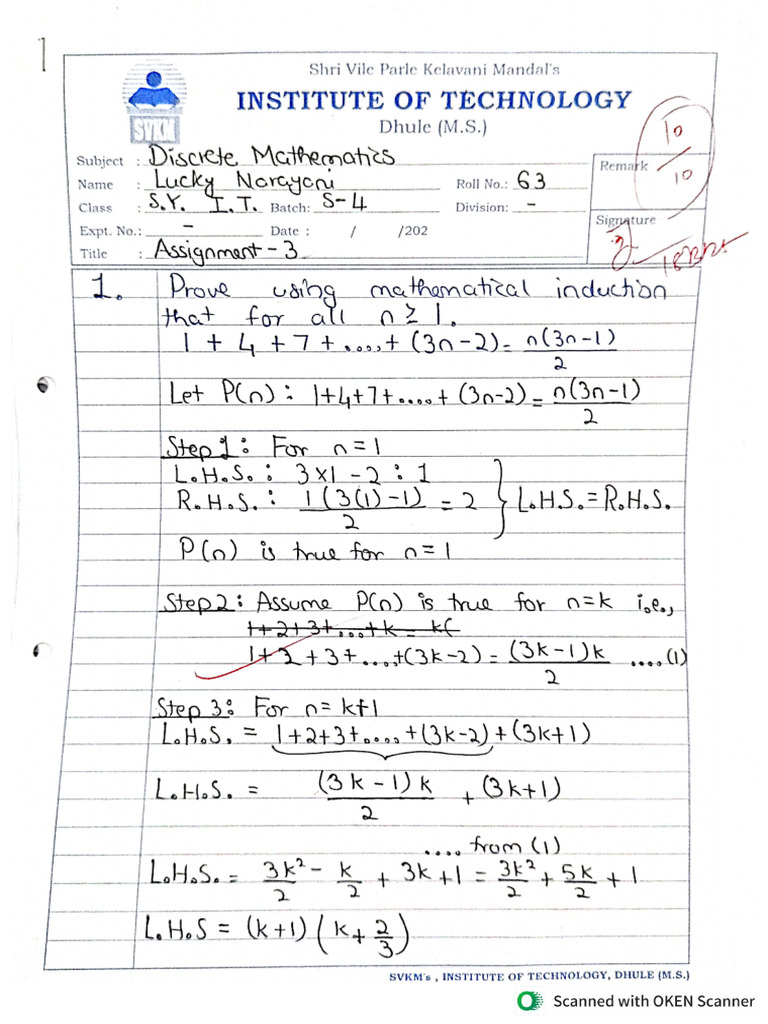 1
Shri Vile Parle Kelavani Mandal's
INSTITUTE OF TECHNOLOGY
Dhule (M.S.)
SVKM
Subject : Discrete Mathematics
Name : Lucky Narayani Roll No.: 63
Class : S.Y. I.T. Batch: S-4 Division: -
Expt. No.: - Date : / /202
Title : Assignment-3
Remark
10/10
Signature
1. Prove using mathematical induction
that for all n ≥ 1.
1 + 4 + 7 + ....+ (3n-2) = n(3n-1)/2
Let P(n) : 1+4+7+....+ (3n-2) = n(3n-1)/2
Step 1 : For n=1
L.H.S. : 3×1 - 2 : 1
R.H.S. : 1(3(1)-1)/2 = 2 } L.H.S. = R.H.S.
P(n) is true for n=1
Step 2 : Assume P(n) is true for n=k i.e.,
1+2+3+....+k = k(
1+2+3+....+(3k-2) = (3k-1)k/2 ....(1)
Step 3 : For n=k+1
L.H.S. = 1+2+3+....+(3k-2)+(3k+1)
L.H.S. = (3k-1)k/2 + (3k+1)
.... from (1)
L.H.S. = 3k²/2 - k/2 + 3k+1 = 3k²/2 + 5k/2 + 1
L.H.S = (k+1)(k+2/3)
SVKM's , INSTITUTE OF TECHNOLOGY, DHULE (M.S.)
Scanned with OKEN Scanner